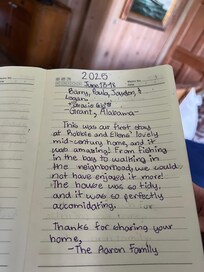 2025
June 15-18
Barry, Paula, Jordan, &
Logan.
Grant, Alabama
This was our first stay
at Robbie and Ellens' lovely
mid-century home, and it
was amazing! From fishing
in the bay to walking in
the neighborhood, we could
not have enjoyed it more!
The house was so tidy,
and it was so perfectly
accomidating.
Thanks for sharing your
home,
-The Aaron Family